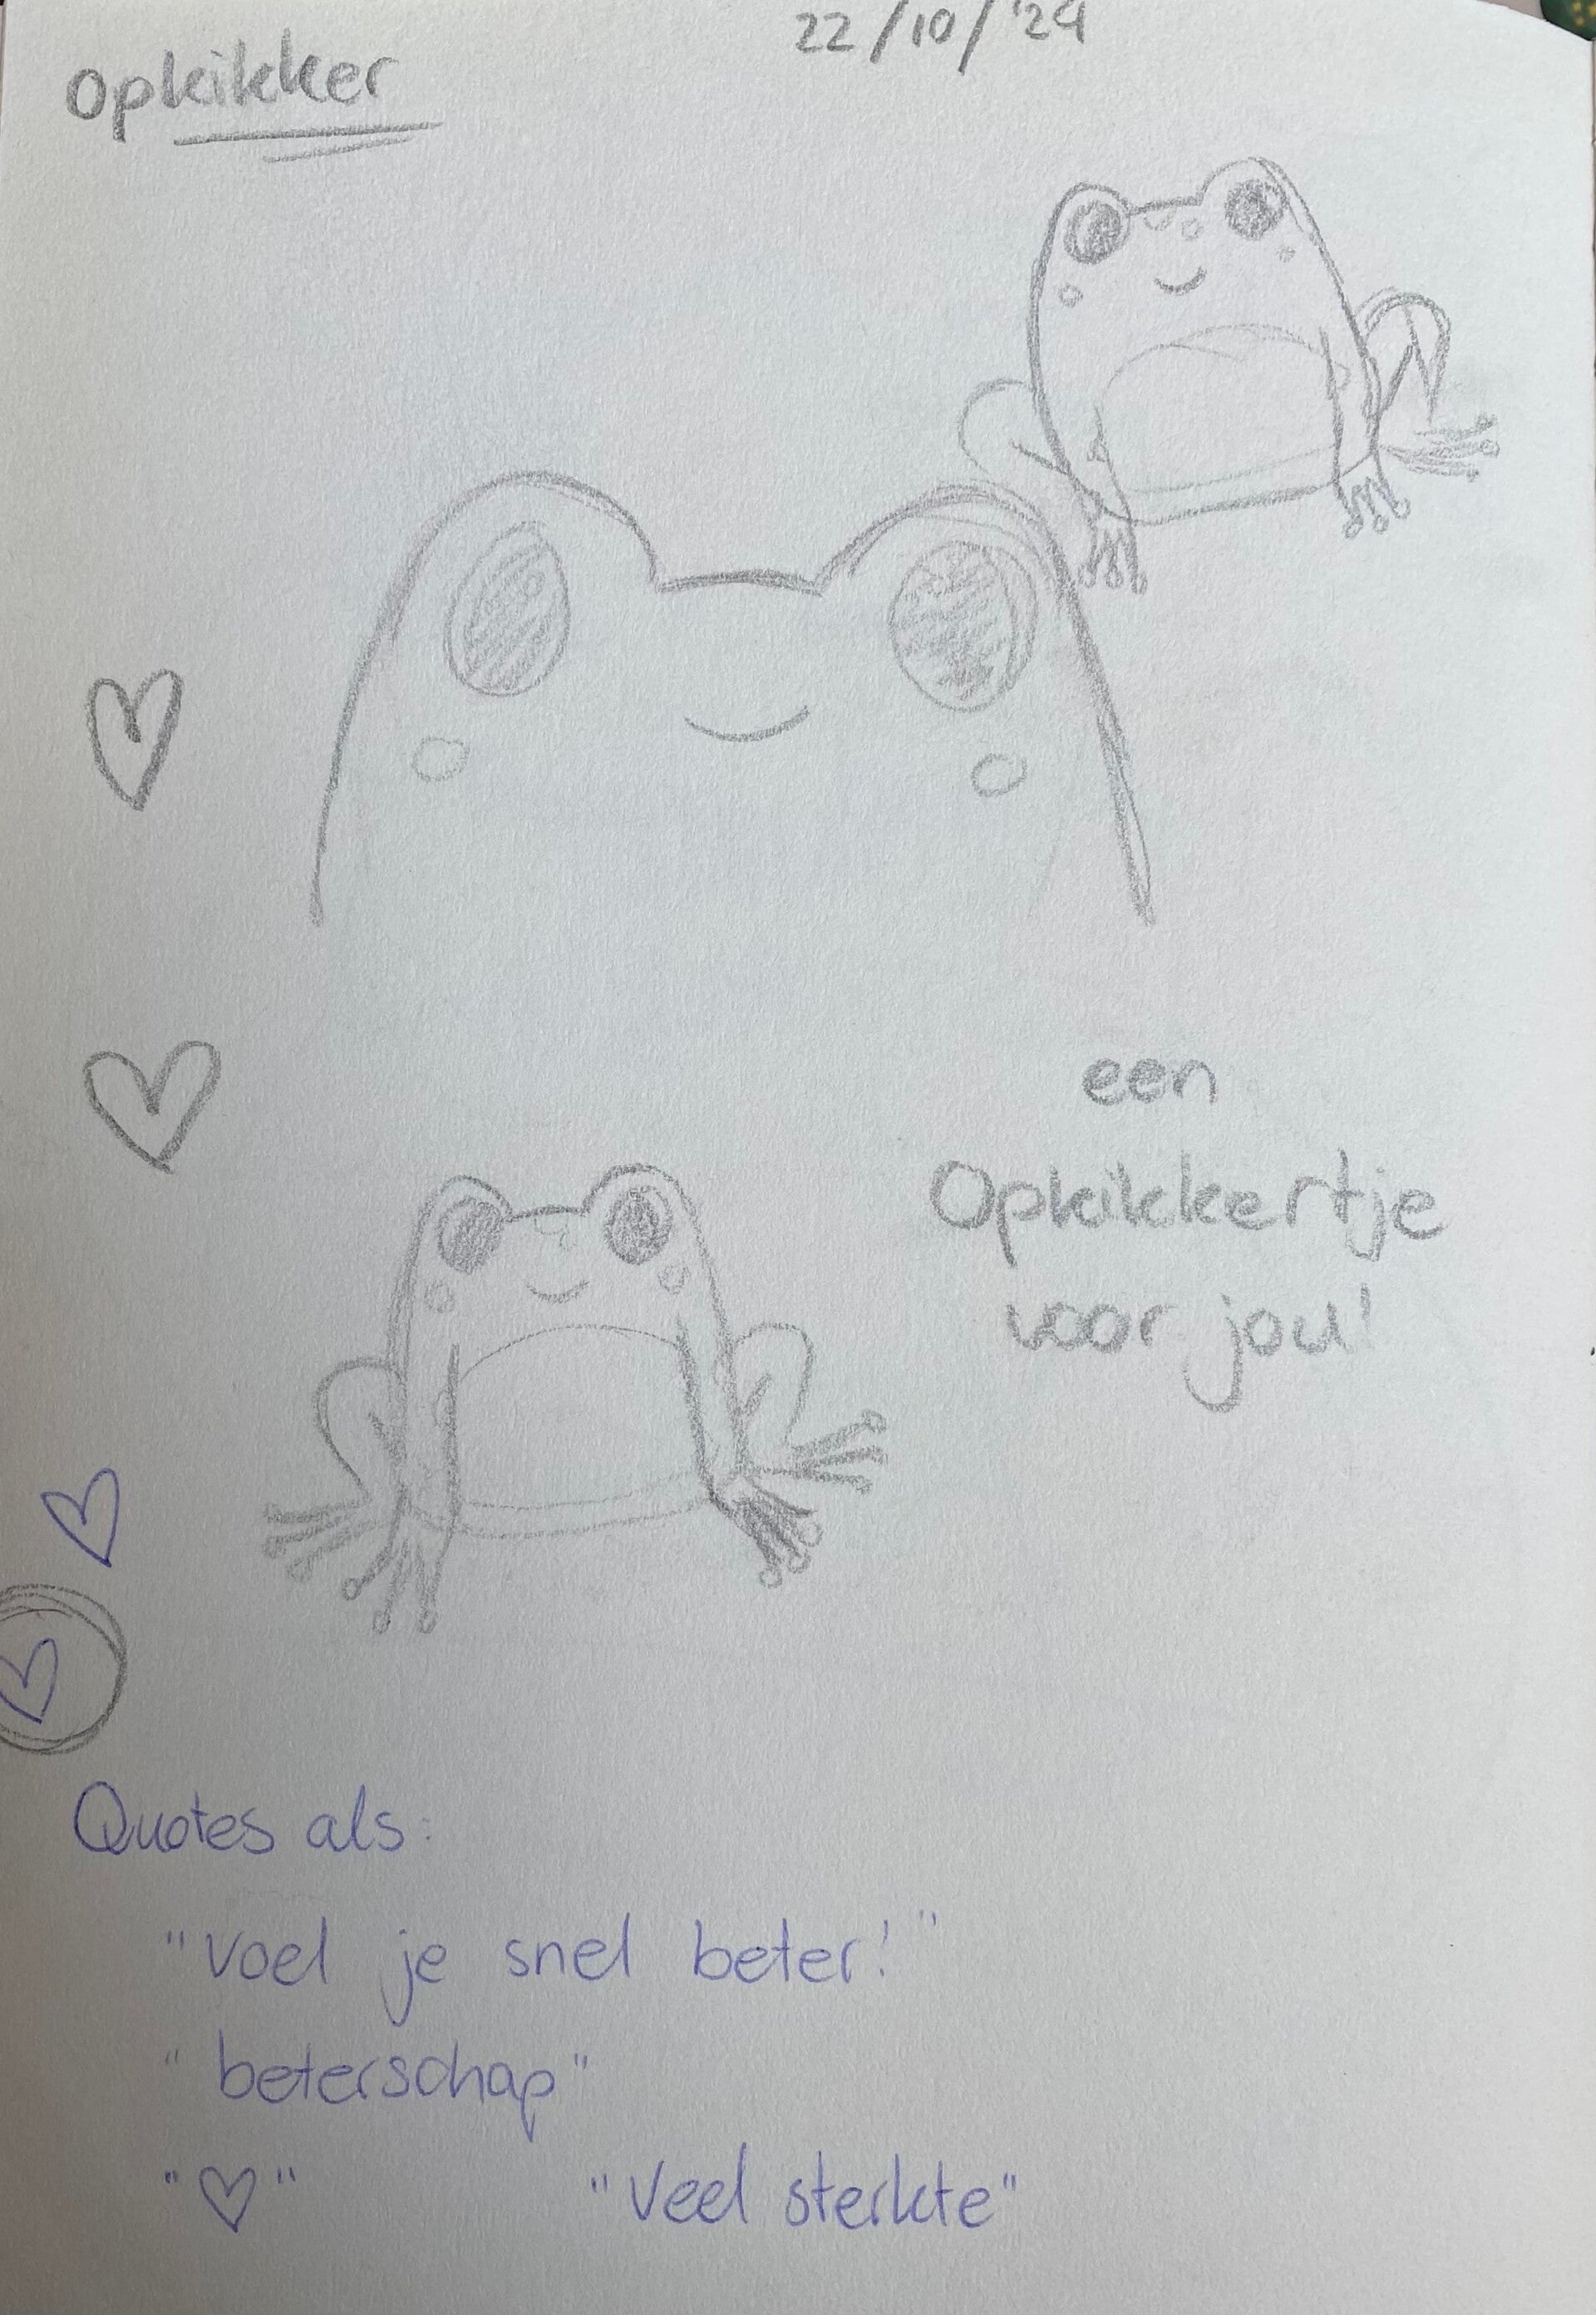 22/10/'24
Opkikker
een
Opkikkertje
voor jou!
Quotes als:
"Voel je snel beter!"
"beterschap"
"♡" "Veel sterkte"